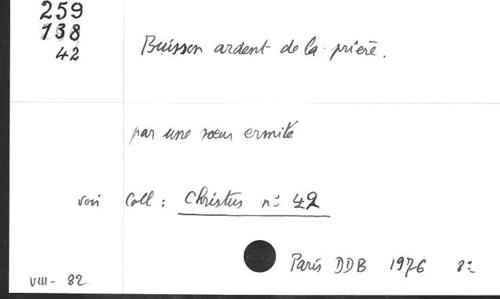 259
138
42
Buisson ardent de la prière.
par une sœur ermite
voir Coll : Christus n° 42
Paris DDB 1976 8°
VIII - 82